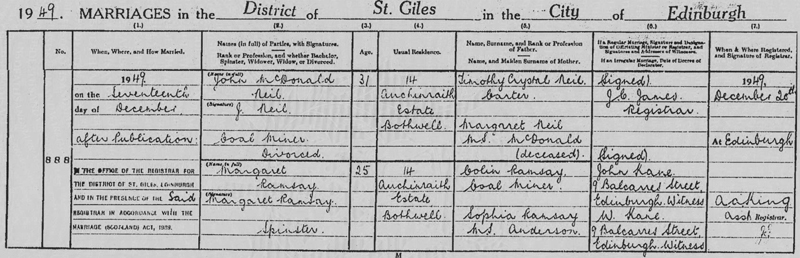 1949. MARRIAGES in the District of St. Giles in the City of Edinburgh
(1.) (2.) (3.) (4.) (5.) (6.) (7.)
No.
When, Where, and How Married.
Names (in full) of Parties, with Signatures.
Rank or Profession, and whether Bachelor,
Spinster, Widower, Widow, or Divorced.
Age.
Usual Residence.
Name, Surname, and Rank or Profession
of Father.
Name, and Maiden Surname of Mother.
If a Regular Marriage, Signature and Designation
of Officiating Minister or Registrar, and
Signatures and Addresses of Witnesses.
If an Irregular Marriage, Date of Decree of
Declarator.
When & Where Registered,
and Signature of Registrar.
888
1949
on the Seventeenth
day of December
after Publication:
IN THE OFFICE OF THE REGISTRAR FOR
THE DISTRICT OF ST. GILES, EDINBURGH
AND IN THE PRESENCE OF THE Said
REGISTRAR IN ACCORDANCE WITH THE
MARRIAGE (SCOTLAND) ACT, 1939.
(Name in full)
John McDonald
Neil.
(Signature)
J. Neil.
Coal Miner
Divorced.
(Name in full)
Margaret
Ramsay
(Signature)
Margaret Ramsay.
Spinster
31
25
14
Auchinraith
Estate
Bothwell
14
Auchinraith
Estate
Bothwell
Timothy Crystal Neil.
Carter.
Margaret Neil
M.S. McDonald
(deceased)
Colin Ramsay,
Coal Miner.
Sophia Ramsay
M.S. Anderson.
(Signed).
J.C. James.
Registrar
(Signed)
John Kane.
9 Balcarres Street,
Edinburgh. Witness
W. Kane.
9 Balcarres Street,
Edinburgh. Witness
1949.
December 20th
At Edinburgh
Asst Registrar.
M